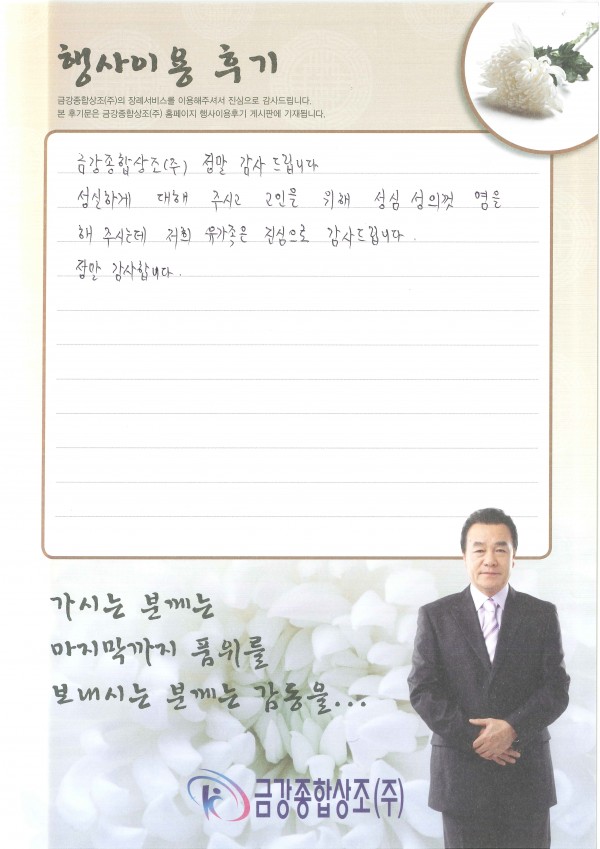 행사이용 후기
금강종합상조(주)의 장례서비스를 이용해주셔서 진심으로 감사드립니다.
본 후기문은 금강종합상조(주) 홈페이지 행사이용후기 게시판에 기재됩니다.
금강종합상조(주) 정말 감사 드립니다
성실하게 대해 주시고 고인을 위해 성심 성의껏 염을
해 주시는데 저희 유가족은 진심으로 감사드립니다.
정말 감사합니다.
가시는 분께는
마지막까지 품위를
보내시는 분께는 감동을...
금강종합상조(주)